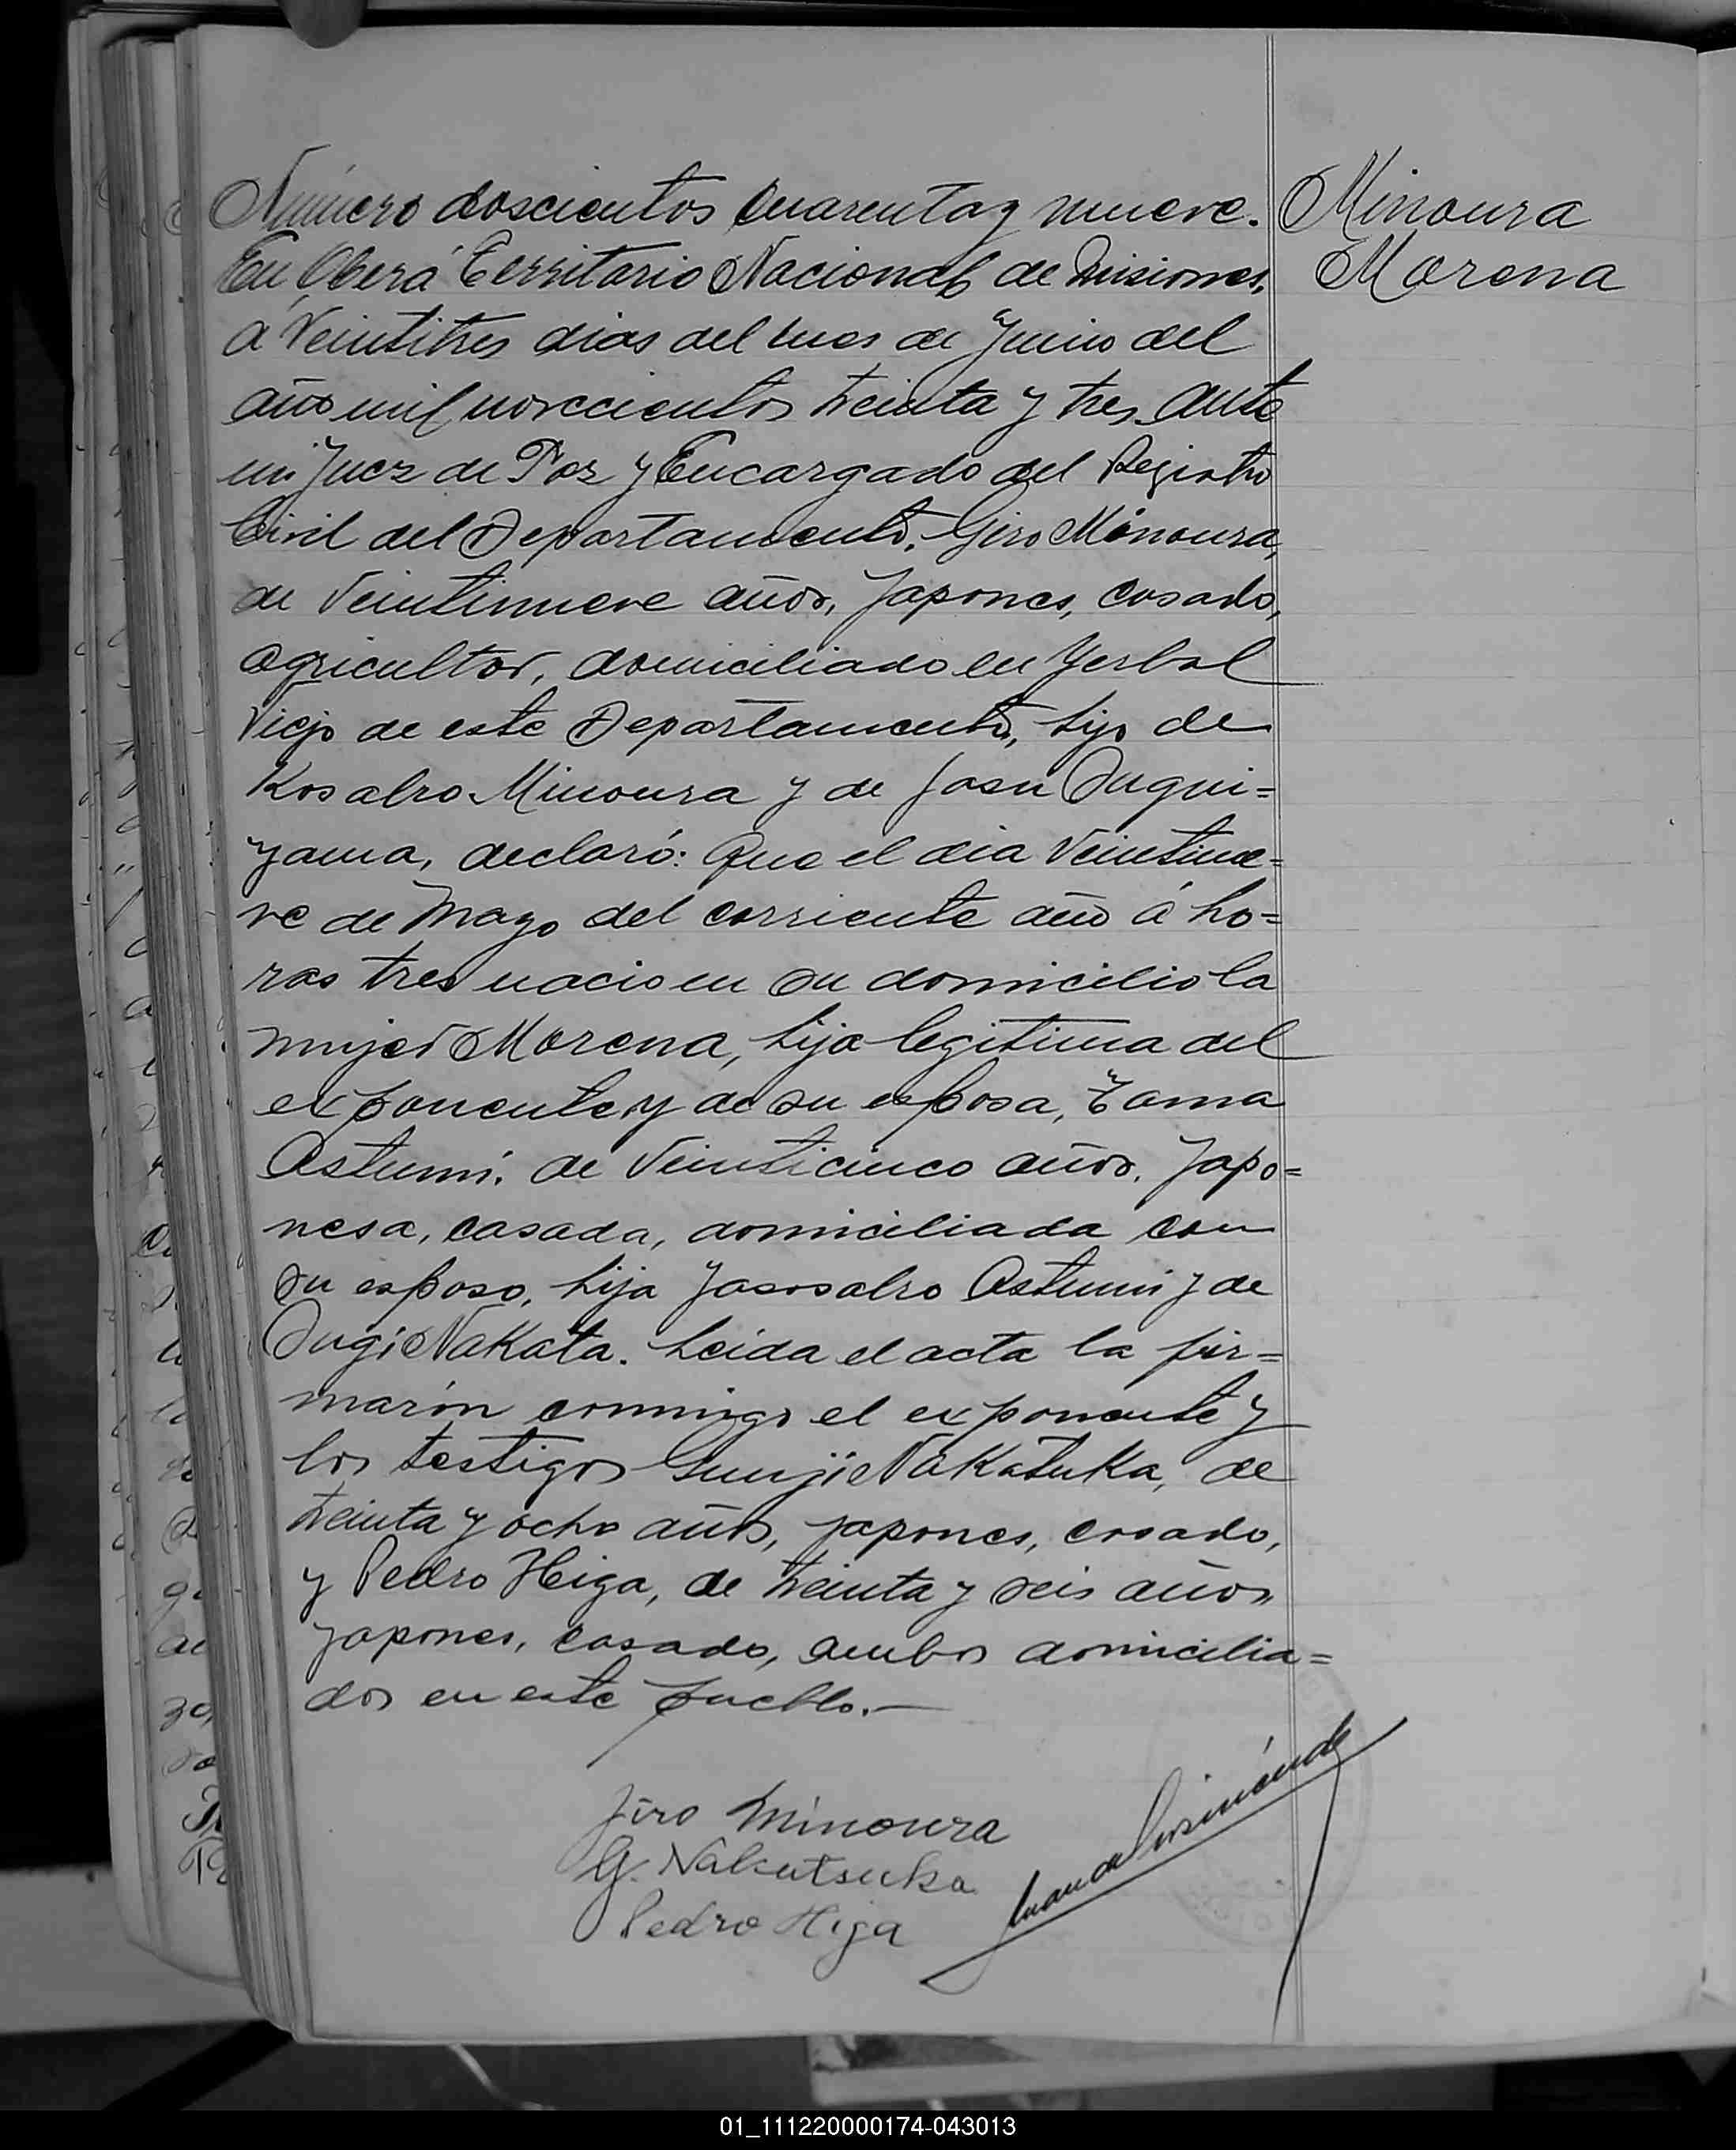 Número doscientos cuarenta y nueve.
Minoura
Morena
En Oberá Territorio Nacional de Misiones,
á veintitres dias del mes de Junio del
año mil novecientos treinta y tres. Ante
mi Juez de Paz y Encargado del Registro
Civil del Departamento, Giro Minoura,
de veintinueve años, Japones, casado,
agricultor, domiciliado en Yerbal
Viejo de este Departamento, hijo de
Kosabro Minoura y de Jasu Sugui=
yama, declaró: Que el dia veintinue=
ve de Mayo del corriente año á ho=
ras tres nacio en su domicilio la
mujer Morena, hija legitima del
exponente y de su esposa, Tama
Astumi, de veinticinco años, Japo=
nesa, casada, domiciliada con
su esposo, hija Jasosabro Astumi y de
Sugi Nakata. Leida el acta la fir=
marón conmigo el exponente y
los testigos Gunji Nakatuka, de
treinta y ocho años, japones, casado,
y Pedro Higa, de treinta y seis años,
japones, casado, ambos domicilia=
dos en este pueblo.—
Jiro Minoura
G. Nakatsuka
Pedro Higa
01_111220000174-043013